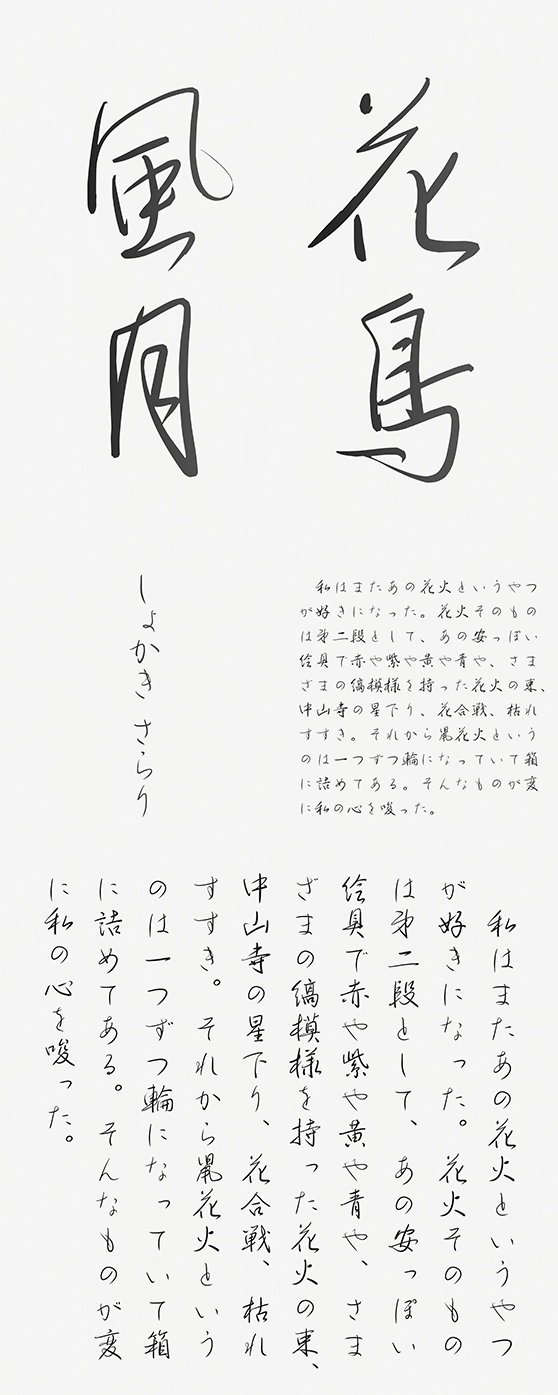 花鳥
風月
しょかきさらり
私はまたあの花火というやつ
が好きになった。花火そのもの
は第二段として、あの安っぽい
絵具で赤や紫や黄や青や、さま
ざまの縞模様を持った花火の束、
中山寺の星下り、花合戦、枯れ
すすき。それから鼠花火という
のは一つずつ輪になっていて箱
に詰めてある。そんなものが変
に私の心を唆った。
私はまたあの花火というやつ
が好きになった。花火そのもの
は第二段として、あの安っぽい
絵具で赤や紫や黄や青や、さま
ざまの縞模様を持った花火の束、
中山寺の星下り、花合戦、枯れ
すすき。それから鼠花火という
のは一つずつ輪になっていて箱
に詰めてある。そんなものが変
に私の心を唆った。